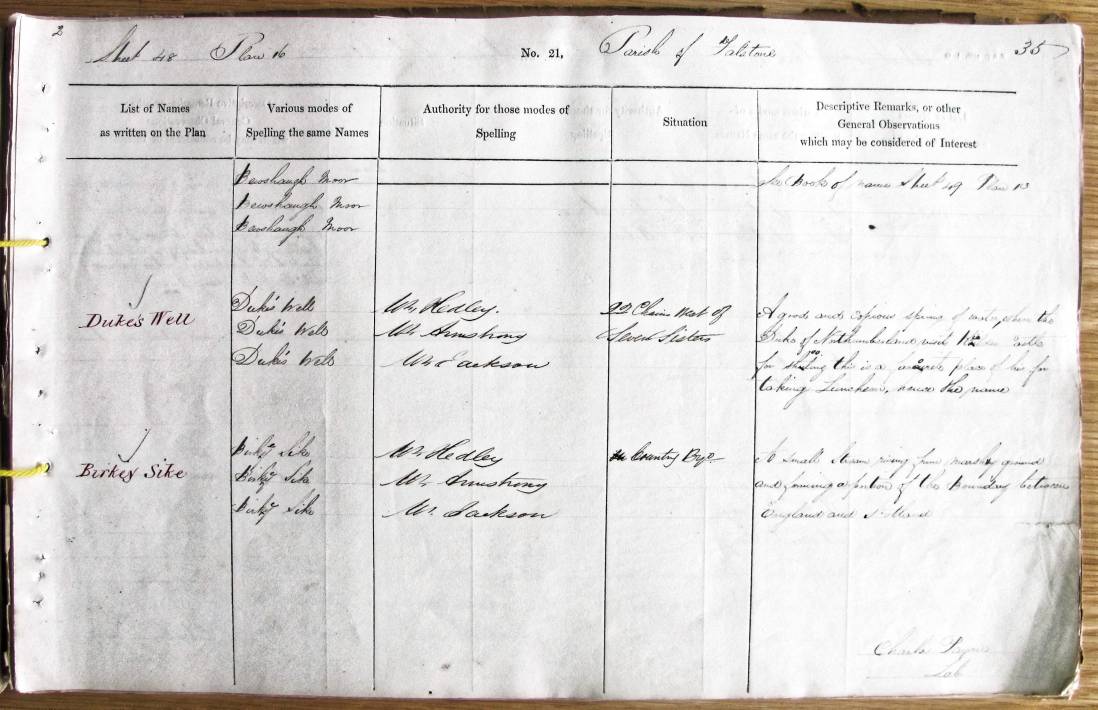 2
Sheet 48 Plan 16 No. 21, Parish of Falstone 35
List of Names
as written on the Plan
Various modes of
Spelling the same Names
Authority for those modes of
Spelling
Situation
Descriptive Remarks, or other
General Observations
which may be considered of Interest
Bewshaugh Moor See Book of names Sheet 49 Plan 13
Bewshaugh Moor
Bewshaugh Moor
Duke's Well
Duke's Well Mr. Hedley. 22 Chains West of
Duke's Well Mr. Armstrong Seven Sisters
Duke's Well Mr. Jackson
A good and copious spring of water, when the
Duke of Northumberland visit Castle
for shooting this is a favorite place of his for
taking Luncheon, hence the name
Birkey Sike
Birky Sike Mr. Hedley In Country Bye.
Birky Sike Mr. Armstrong
Birky Sike Mr. Jackson
A small stream rising from marshy ground
and forming a portion of the Boundary between
England and Scotland
Charles Payne